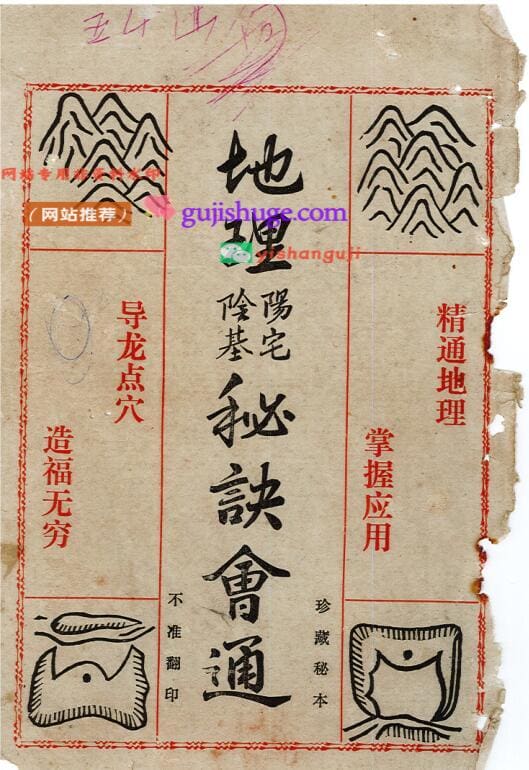 精通地理
掌握应用
珍藏秘本
地理
陽宅
陰基
秘訣會通
不准翻印
导龙点穴
造福无穷
（网站推荐）
gujishuge.com
yishanguji